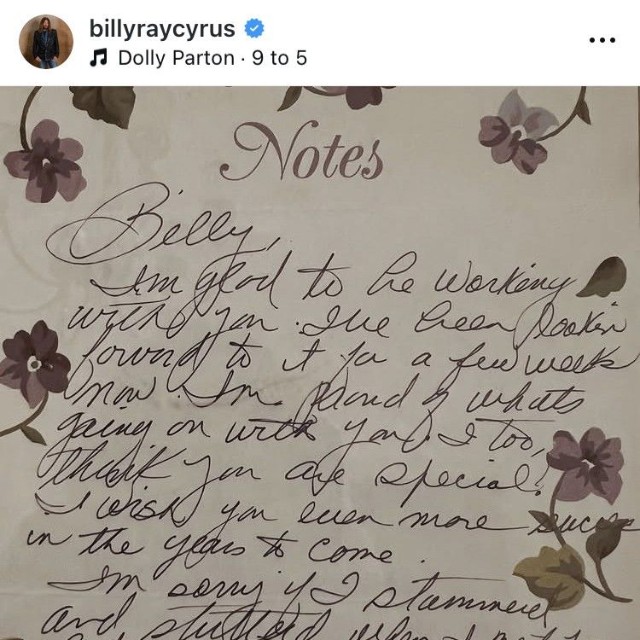 billyraycyrus
Dolly Parton · 9 to 5
Notes
Billy,
I'm glad to be working
with you. I've been lookin
forward to it for a few weeks
now. I'm proud of whats
going on with you. I too,
think you are special.
I wish you even more
in the years to come.
I'm sorry if I stammered
and stuttered when I